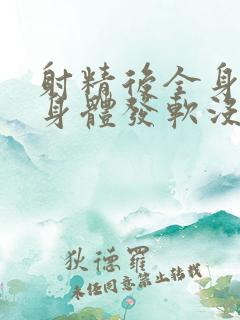 射精後全身
身體發軟沒
狄德羅
未經同意禁止轉載